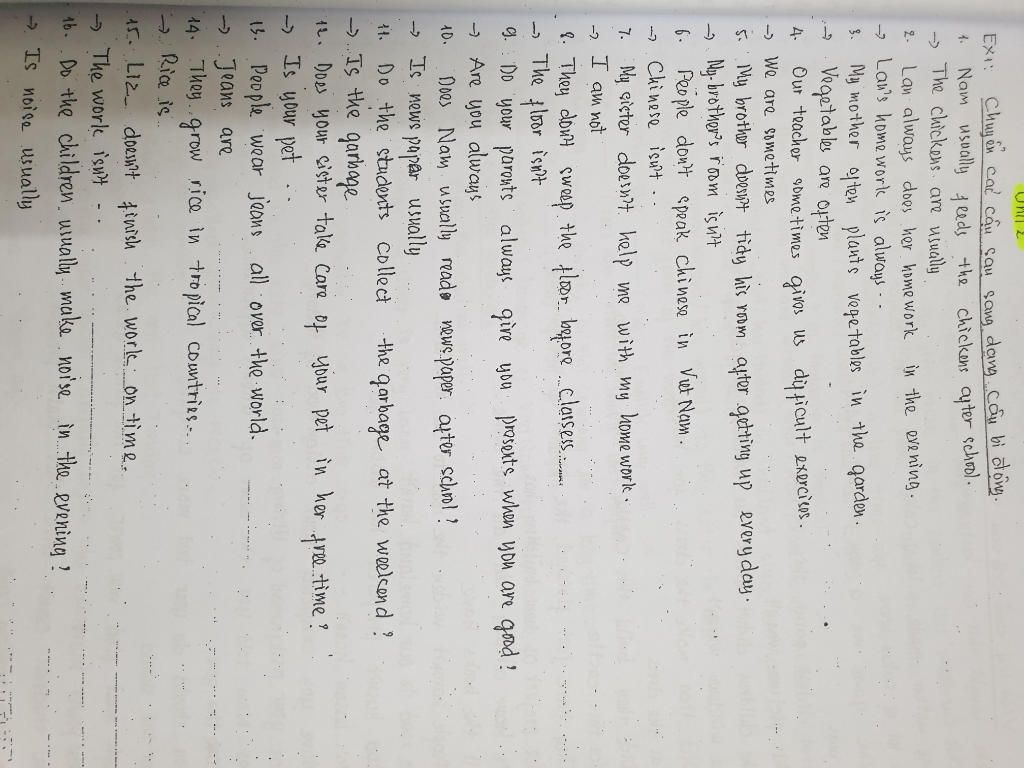 Unit 2
Ex1: Chuyển các câu sau sang dạng câu bị động.
1. Nam usually feeds the chickens after school.
→ The chickens are usually
2. Lan always does her homework in the evening.
→ Lan's homework is always..
3. My morther often plants vegetables in the garden.
→ Vegetable are often
4. Our teacher sometimes gives us difficult exercises.
→ We are sometimes
5. My brother doesn't tidy his room after getting up everyday.
→ My brother's room isn't
6. People don't speak Chinese in Viet Nam.
→ Chinese isn't..
7. My sister doesn't help me with my homework.
→ I am not
8. They don't sweep the floor before classess......
→ The floor isn't
9. Do your parents always give you presents when you are good?
→ Are you always
10. Does Nam usually read newspaper after schol?
→ Is newspaper usually
11. Do the students collect the garbage at the weekend?
→ Is the garbage
12. Does your sister take care of your pet in her free time?
→ Is your pet..
13. People wear jeans all over the world.
→ Jeans are
14. They grow rice in tropical countries...
→ Rice is
15. Liz doesn't finish the work on time.
→ The work isn't..
16. Do the children usually make noise in the evening?
→ Is noise usually